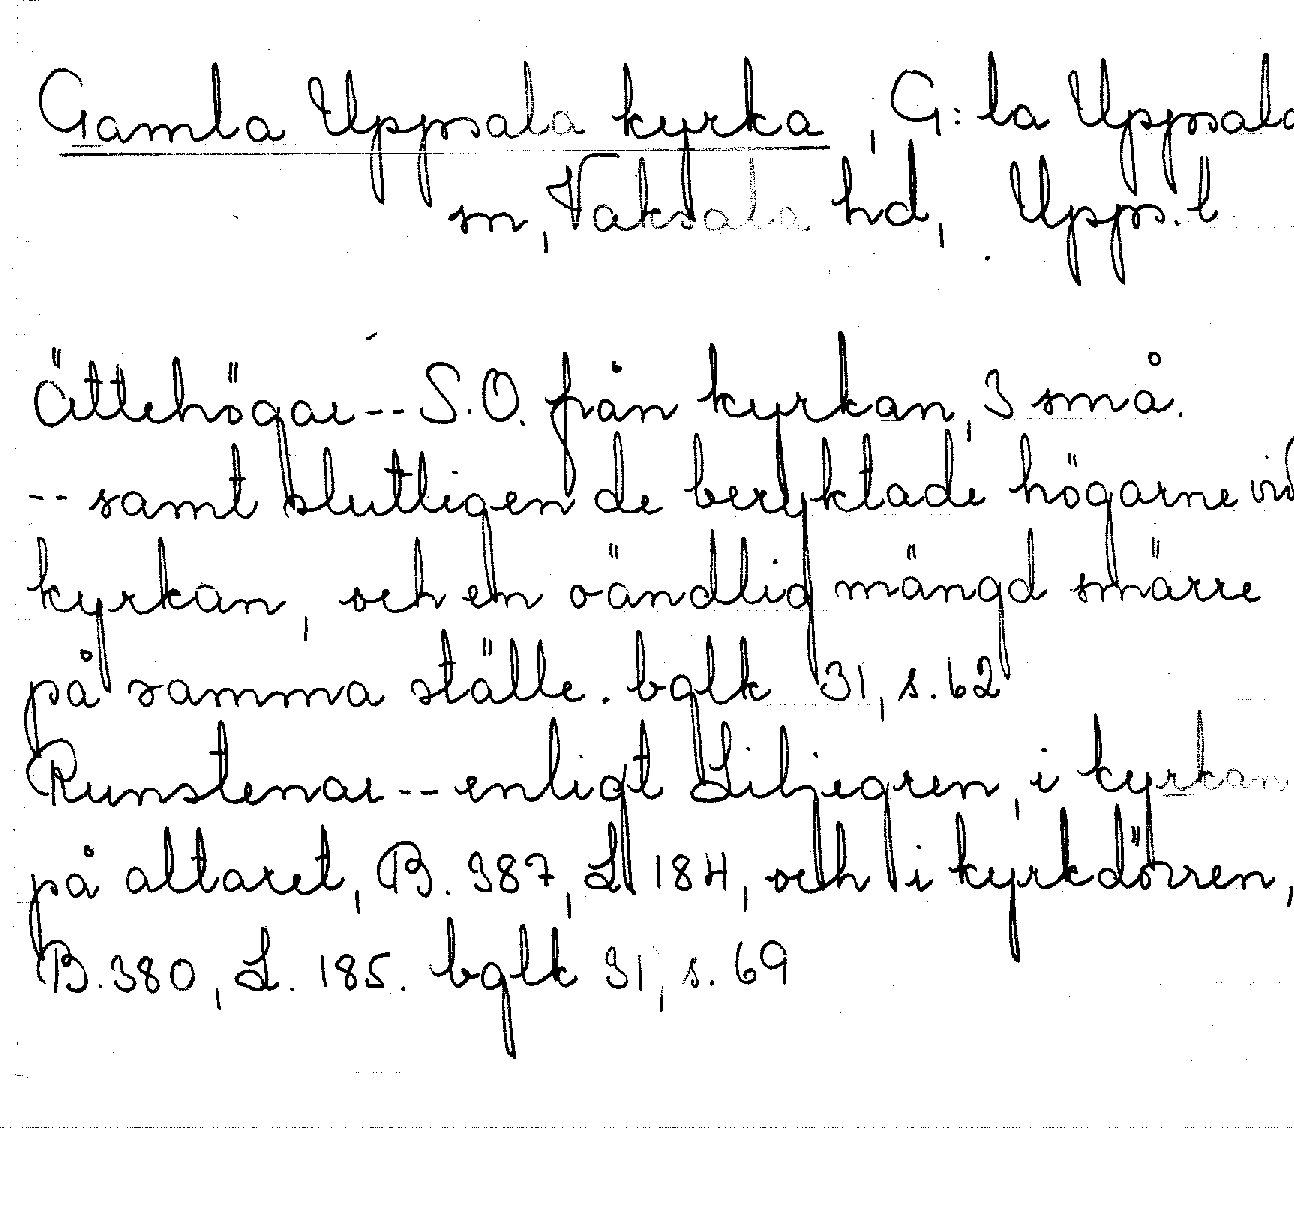 Gamla Uppsala kyrka, G:la Uppsala
sn, Vaksala hd, Upps. l
Ättehögar -- S.O. från kyrkan, 3 små.
-- samt slutligen de beryktade högarne vid
kyrkan, och en oändlig mängd smärre
på samma ställe. bglk 31, s. 62
Runstenar -- enligt Liljegren, i kyrkan
på altaret, B. 387, L 184, och i kyrkdörren,
B. 380, L. 185. bglk 31, s. 69